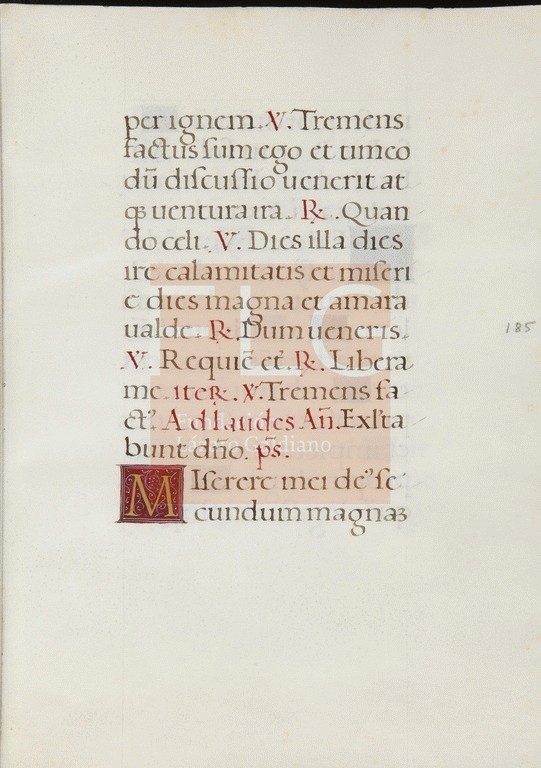 per ignem. V. Tremens
factus sum ego et timeo
dũ discussio uenerit at
qꝫ uentura ira. ℞. Quan
do celi. V. Dies illa dies
ire calamitatis et miseri
e dies magna et amara
ualde. ℞. Dum ueneris.
V. Requiẽ et̃. ℞. Libera
me. iteR. V. Tremens fa
ct9. Ad laudes Añ. Exlta
bunt dño. p̃s.
Miserere mei de9 se
cundum magnaꝫ
185
FLG
Fundación
Lázaro Galdiano